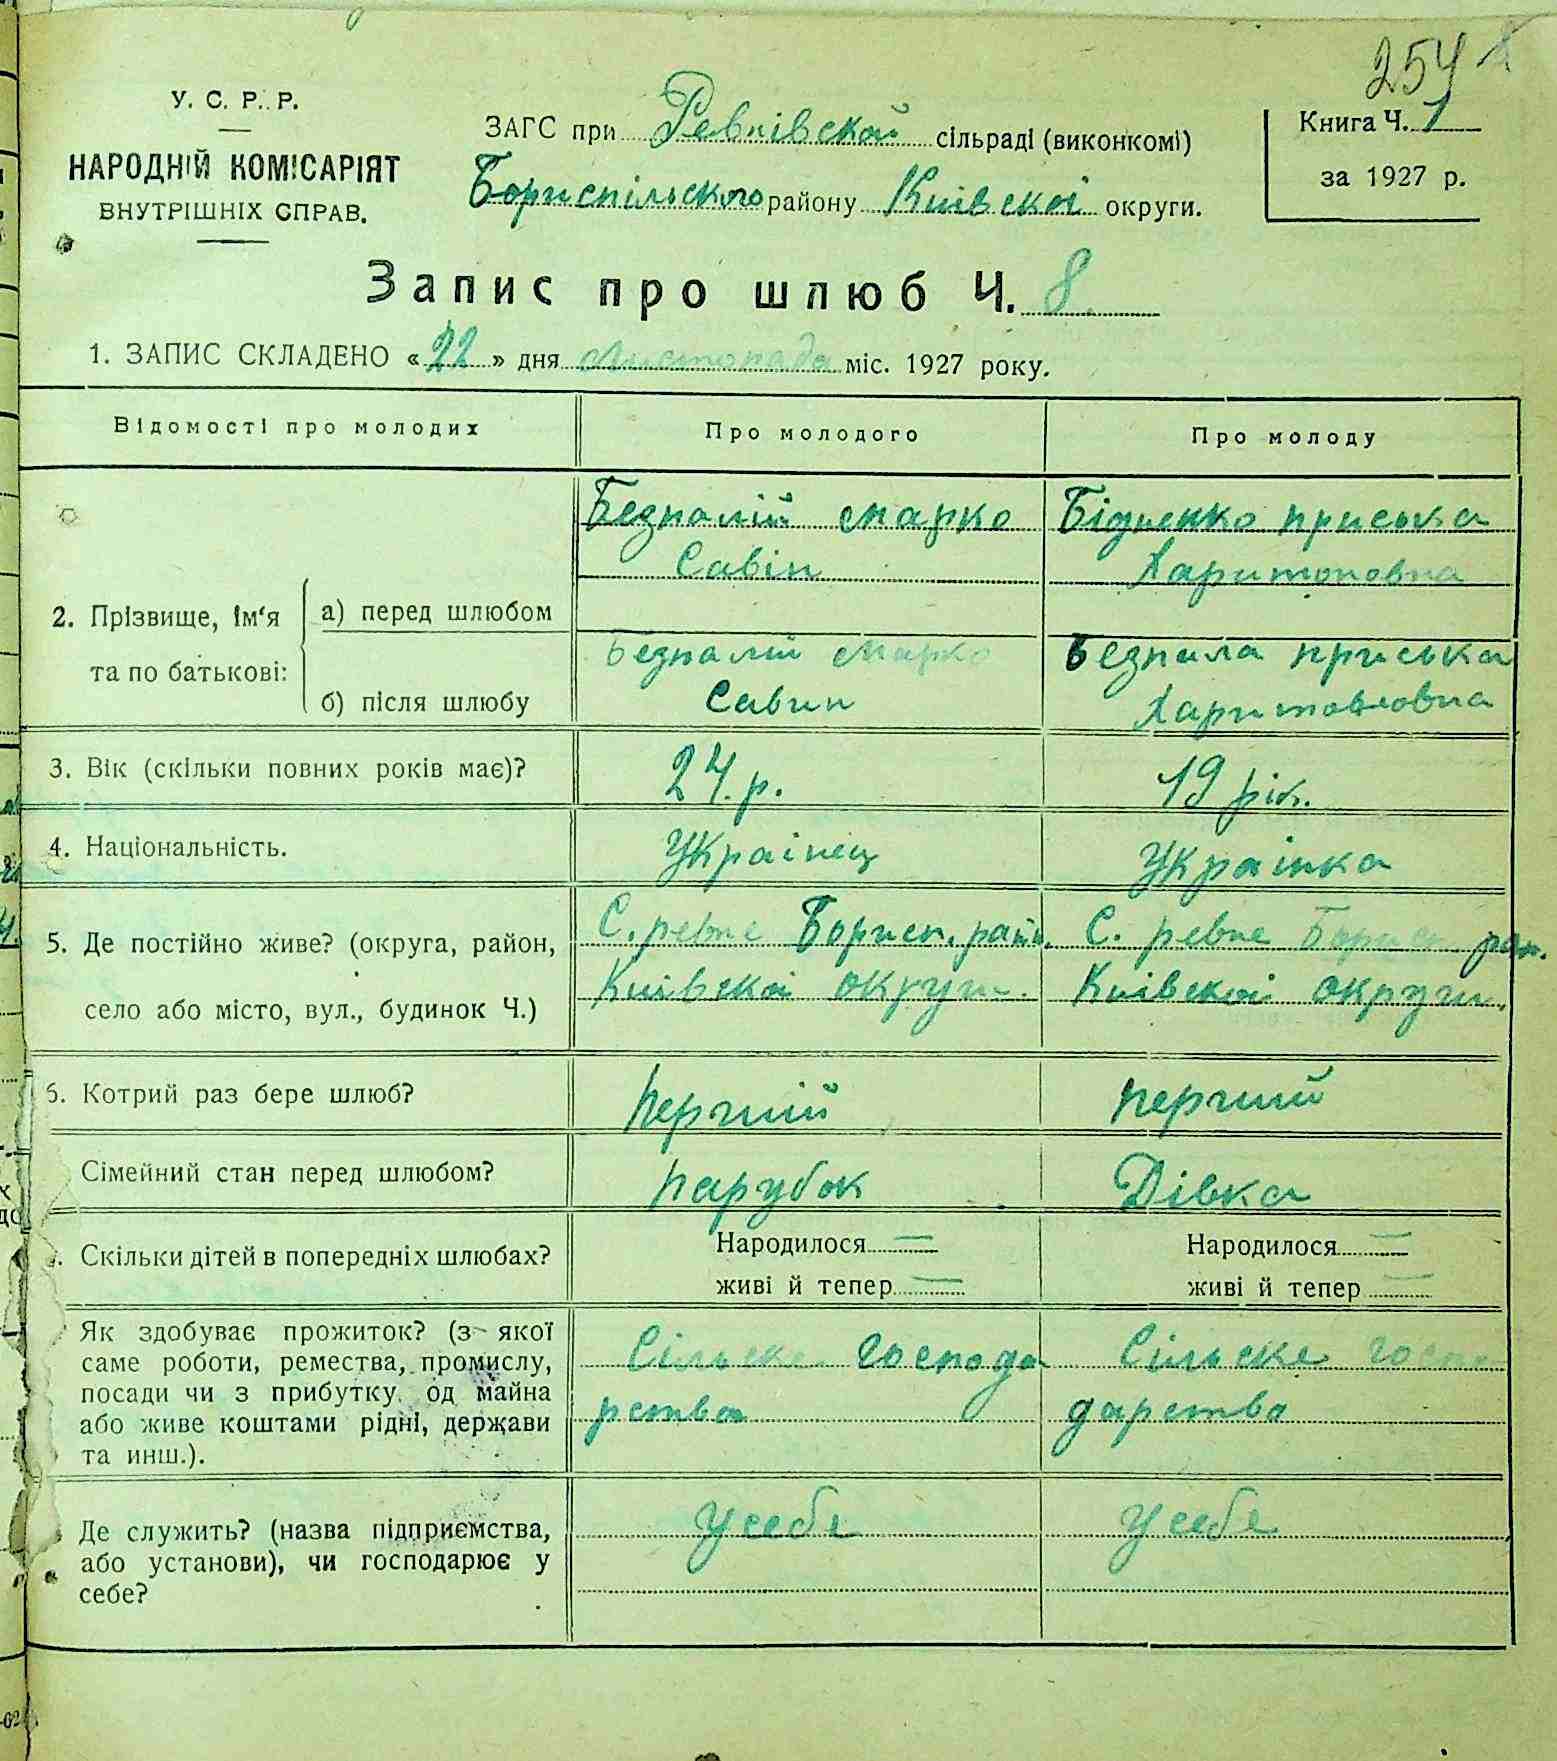 254
У. С. Р. Р.
НАРОДНІЙ КОМІСАРІЯТ
ВНУТРІШНІХ СПРАВ.
ЗАГС при Ревнівской сільраді (виконкомі)
Бориспільского району Київскої округи.
Книга Ч. 1
за 1927 р.
Запис про шлюб Ч. 8
1. ЗАПИС СКЛАДЕНО «22» дня листопада міс. 1927 року.
Відомості про молодих
Про молодого
Про молоду
2. Прізвище, ім'я
та по батькові:
а) перед шлюбом
Безпалій Марко
Савін
Приська
Харитоновна
б) після шлюбу
Безпалій Марко
Савин
Безпала Приська
Харитоновна
3. Вік (скільки повних років має)?
24.р.
19 рік.
4. Національність.
Українец
Українка
5. Де постійно живе? (округа, район,
село або місто, вул., будинок Ч.)
С. ревне Борисп. район.
Київскої округи.
С. ревне Борисп. рай.
Київской округи.
6. Котрий раз бере шлюб?
перший
перший
Сімейний стан перед шлюбом?
парубок
Дівка
Скільки дітей в попередніх шлюбах?
Народилося —
живі й тепер —
Народилося —
живі й тепер —
Як здобуває прожиток? (з якої
саме роботи, ремества, промислу,
посади чи з прибутку од майна
або живе коштами рідні, держави
та инш.).
Сільске господа
рство
Сільске госпо
дарство
Де служить? (назва підприємства,
або установи), чи господарює у
себе?
У себе
У себе